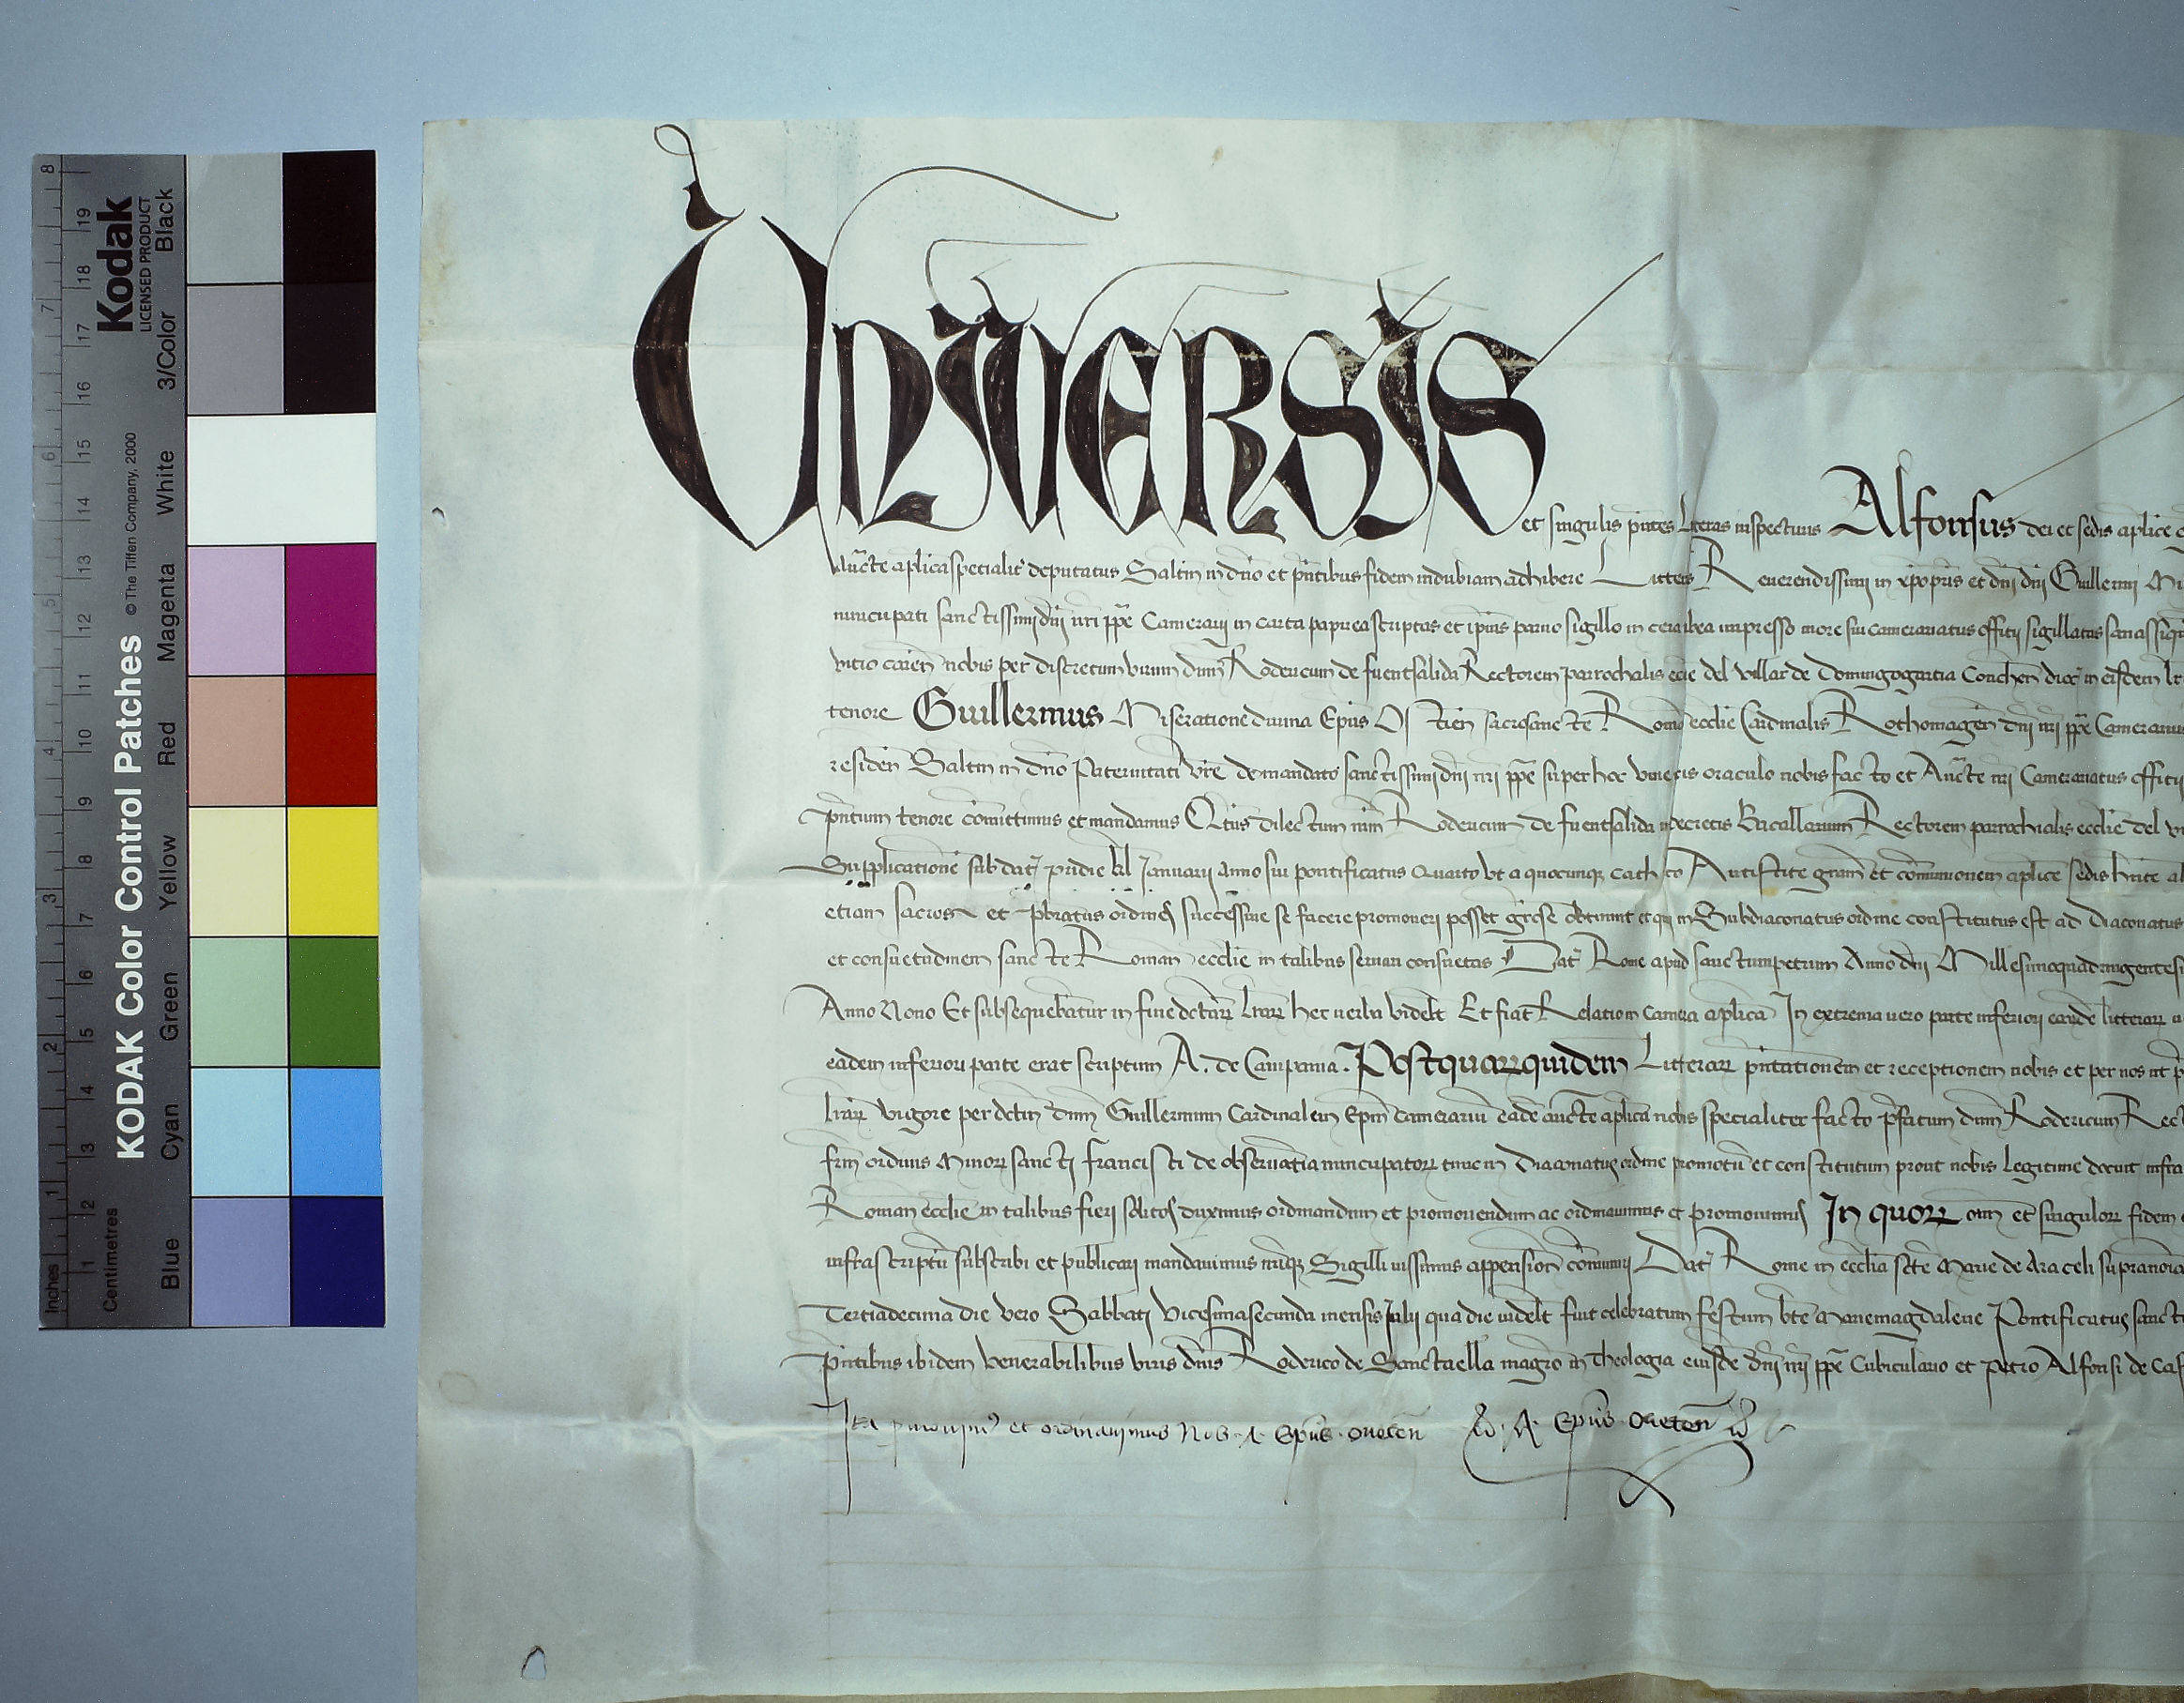 KODAK Color Control Patches
© The Tiffen Company, 2000
Kodak
LICENSED PRODUCT
Inches
1 2 3 4 5 6 7 8
Centimetres
1 2 3 4 5 6 7 8 9 10 11 12 13 14 15 16 17 18 19
Blue Cyan Green Yellow Red Magenta White 3/Color Black
UNIVERSIS et singulis pn̄tes Litteras inspecturis Alfonsus dei et sedis aplice
Aucte aplica specialit deputatus Saltm in dn̄o et pn̄tibus fidem indubiam adhibere Litteras Reuerendissimi in xp̄o pr̄is et dn̄i dn̄i Guillermi
nuncupati sanctissimi dn̄i nr̄i pp̄e Camerarij in carta papirea scriptas et ip̄ius paruo sigillo in cera rubea impresso more sui camerariatus officij sigillatas sanas
vitio caren̄ nobis per discretum virum dn̄m Rodericum de fuentsalida Rectorem parrochialis eccl̄ie del villar de domingogartia Conchen̄ dioc̄ in eisdem
tenore Guillermus Miseratione diuina Ep̄us Ostien̄ sacrosancte Roman̄ eccl̄ie Cardinalis Rothomagen̄ dn̄i nr̄i pp̄e Camerarius
residen̄ Saltm in dn̄o Paternitati vr̄e de mandato sanctissimi dn̄i nr̄i pp̄e super hoc viue vocis oraculo nobis facto et Aucte nr̄i Camerariatus officij
pn̄tium tenore com̄ittimus et mandamus Qt̄us dilectum nr̄m Rodericum de fuentsalida in decretis Bacallarium Rectorem parrochialis eccl̄ie del
Supplicatione sub dat̄ pridie kl̄ Januarij anno sui pontificatus quarto vt a quocunq cath co Antistite gr̄am et com̄unionem aplice sedis hn̄te
etiam sacros et pb̄ratus ordines successiue se facere promoueri posset gr̄ose obtinuit et qui in Subdiaconatus ordine constitutus est ad diaconatus
et consuetudinem sancte Roman̄ eccl̄ie in talibus seruari consuetas Dat̄ Rome apud sanctumpetrum Anno dn̄i
Anno Nono Et subsequebatur in fine dctar̄ lr̄ar̄ hec verba videlt̄ Et fiat Relatio in Camera aplica In extrema vero parte inferiori earūde litterar̄
eadem inferiori parte erat scriptum A. de Campania. Postquar̄quidem Litterar̄ pn̄tationem et receptionem nobis et per nos vt
lr̄ar̄ vigore per dctm̄ dn̄m Guillermum Cardinalem Ep̄m camerariū eadē aucte aplica nobis specialiter facto p̄fatum dn̄m Rodericum
frm̄ ordinis Minor̄ sancti francisci de obseruatia nuncupator̄ tunc in diaconatus ordine promotū et constitutum prout nobis legitime docuit
Roman̄ eccl̄ie in talibus fieri solitos duximus ordinandum et promouendum ac ordinauimus et promouimus In quor̄ om̄ et singulor̄ fidem
infrascriptū subscribi et publicari mandauimus nr̄iq Sigilli iussimus appensione com̄uniri Dat̄ Rome in eccl̄ia scte Marie de Araceli
Tertiadecima die vero Sabbati Vicesimasecunda mensis Julij qua die videlt̄ fuit celebratum festum bt̄e Mariemagdalene Pontificatus
pn̄tibus ibidem venerabilibus viris dn̄is Roderico de Sanctaella magr̄o in Theologia eiusdē dn̄i nr̄i pp̄e Cubiculario et petro Alfonsi de
Ita et ordinauimus Nos A. Ep̄us oueten̄ A. Ep̄us oueten̄